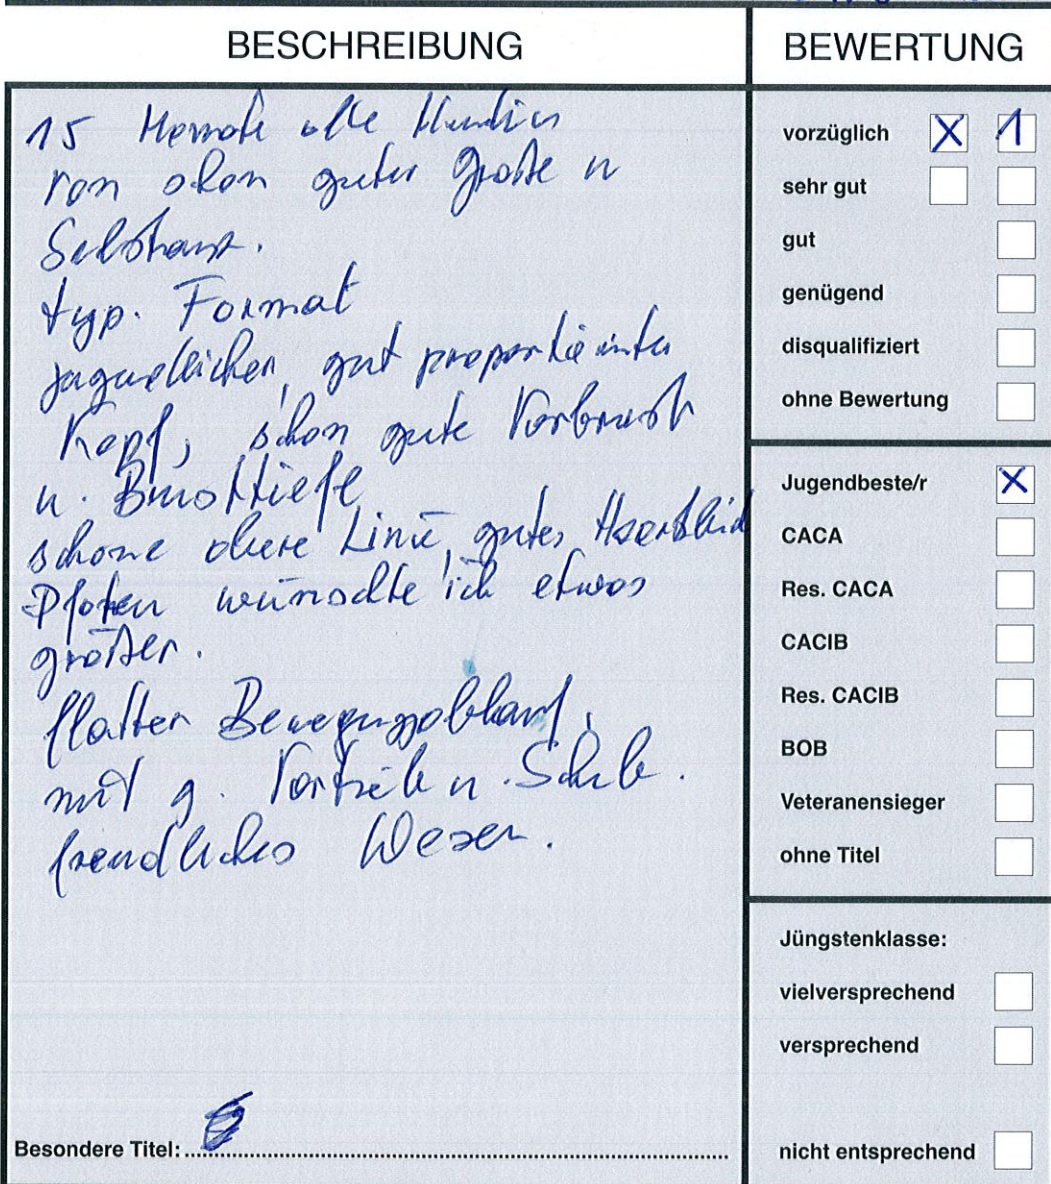 BESCHREIBUNG
15 Monate alte Hündin
von schon guter Größe u
Substanz.
typ. Format
jugendlicher, gut proportionierter
Kopf, schon gute Vorbrust
u. Brusttiefe
schöne obere Linie, gutes Haarkleid
Pfoten wünschte ich etwas
größer.
flotter Bewegungsablauf,
mit g. Vortritt u. Schub.
freundliches Wesen.
Besondere Titel:
BEWERTUNG
vorzüglich X 1
sehr gut
gut
genügend
disqualifiziert
ohne Bewertung
Jugendbeste/r X
CACA
Res. CACA
CACIB
Res. CACIB
BOB
Veteranensieger
ohne Titel
Jüngstenklasse:
vielversprechend
versprechend
nicht entsprechend